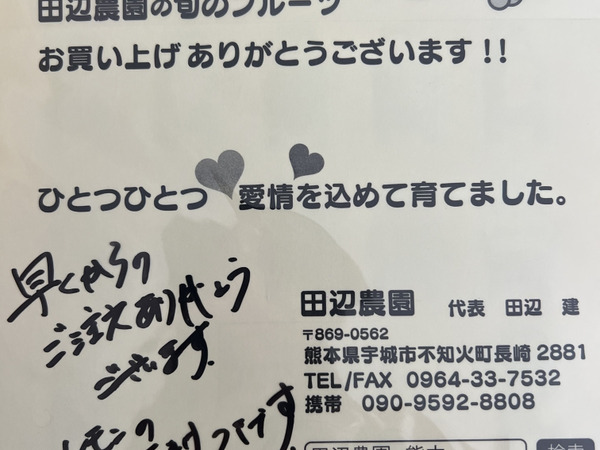 田辺農園の旬のフルーツ
お買い上げありがとうございます!!
ひとつひとつ 愛情を込めて育てました。
早くからの
ご注文ありがとう
ございます.
田辺農園 代表 田辺 建
〒869-0562
熊本県宇城市不知火町長崎2881
TEL/FAX 0964-33-7532
携帯 090-9592-8808
田辺農園 熊本 検索